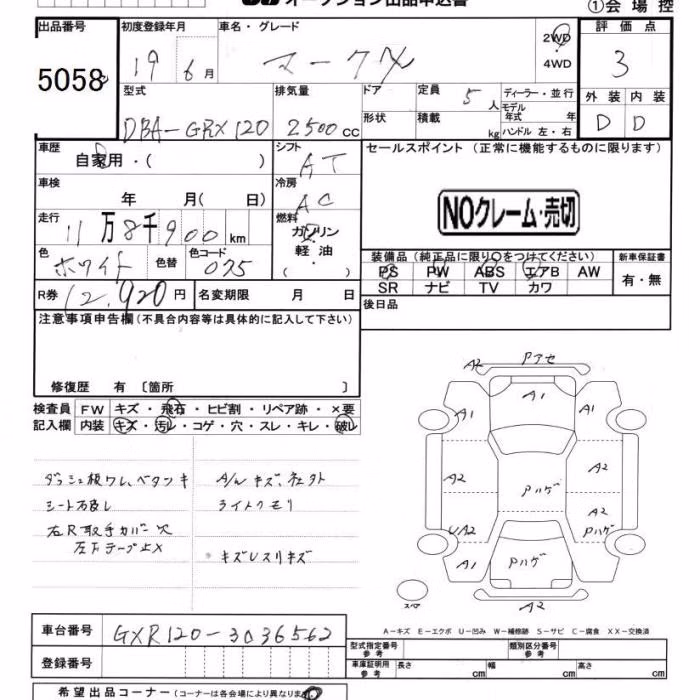 オークション出品申込書
①会場控
出品番号 初度登録年月 車名・グレード 評価点
5058 19年 6月 マークX 2WD 4WD 3
型式 排気量 ドア 定員 5人 ディーラー・並行 外装 内装
DBA-GRX120 2500cc 形状 積載 kg モデル年式 年 D D
ハンドル 左・右
車歴 シフト セールスポイント (正常に機能するものに限ります)
自家用・( ) AT
車検 冷房
年 月( 日) AC NOクレーム・売切
走行 燃料
11万8千900km ガソリン
軽油
・( )
色 色替 色コード 装備品(純正品に限り〇をつけてください) 新車保証書
ホワイト 075 PS PW ABS エアB AW 有・無
SR ナビ TV カワ
R券 12,920円 名変期限 月 日 後日品
注意事項申告欄(不具合内容等は具体的に記入して下さい)
修復歴 有 〔箇所 〕
検査員 FW キズ・飛石・ヒビ割・リペア跡・×要
記入欄 内装 キズ・汚レ・コゲ・穴・スレ・キレ・破レ
ダッシュ板ワレ、ベタツキ A/Wキズ、
ライトクモリ
右R取手カバー穴
キズレスリキズ
A2 Pアセ
A1
A1 A1
A2 A2
Pハゲ
A2
UA2 Pハゲ
A1 Pハゲ A1
A2
スペア
A-キズ E-エクボ U-凹み W-補修跡 S-サビ C-腐食 XX-交換済
車台番号 GXR120-3036562
登録番号
型式指定番号 参考 類別区分番号 参考
車庫証明用 参考 長さ cm 幅 cm 高さ cm
希望出品コーナー(コーナーは各会場により異なりま